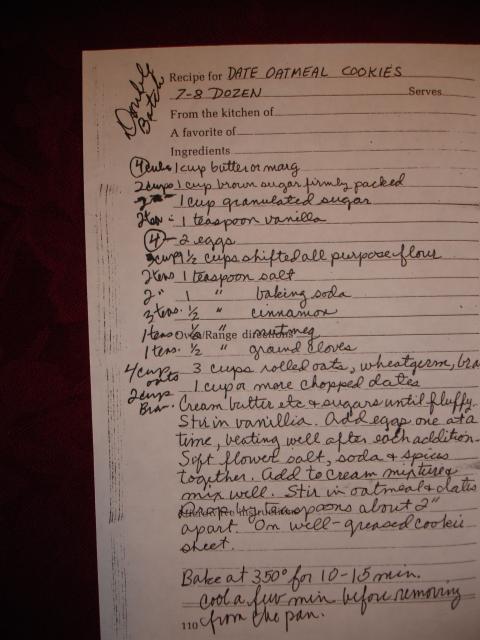 Double Batch
Recipe for DATE OATMEAL COOKIES
7-8 DOZEN Serves
From the kitchen of
A favorite of
Ingredients
1 cup butter or marg
2 cups 1 cup brown sugar firmly packed
2 1 cup granulated sugar
2 teas = 1 teaspoon vanilla
4 - 2 eggs
3 cups 1 1/2 cups shifted all purpose flour
2 teas 1 teaspoon salt
2 " 1 " baking soda
3 teas. 1/2 " cinnamon
1 teas 1/2 " nutmeg
Oven/Range directions
1 teas. 1/2 " ground cloves
4 cups oats 3 cups rolled oats, wheatgerm, bra
2 cups Bran. 1 cup or more chopped dates
Cream butter etc & sugars until fluffy.
Stir in vanillia. Add eggs one at a
time, beating well after each addition.
Sift flower salt, soda & spices
together. Add to cream mixture &
mix well. Stir in oatmeal & dates
Drop by teaspoons about 2"
apart. On well-greased cookie
sheet.
Bake at 350° for 10-15 min.
cool a few min before removing
110 from the pan.